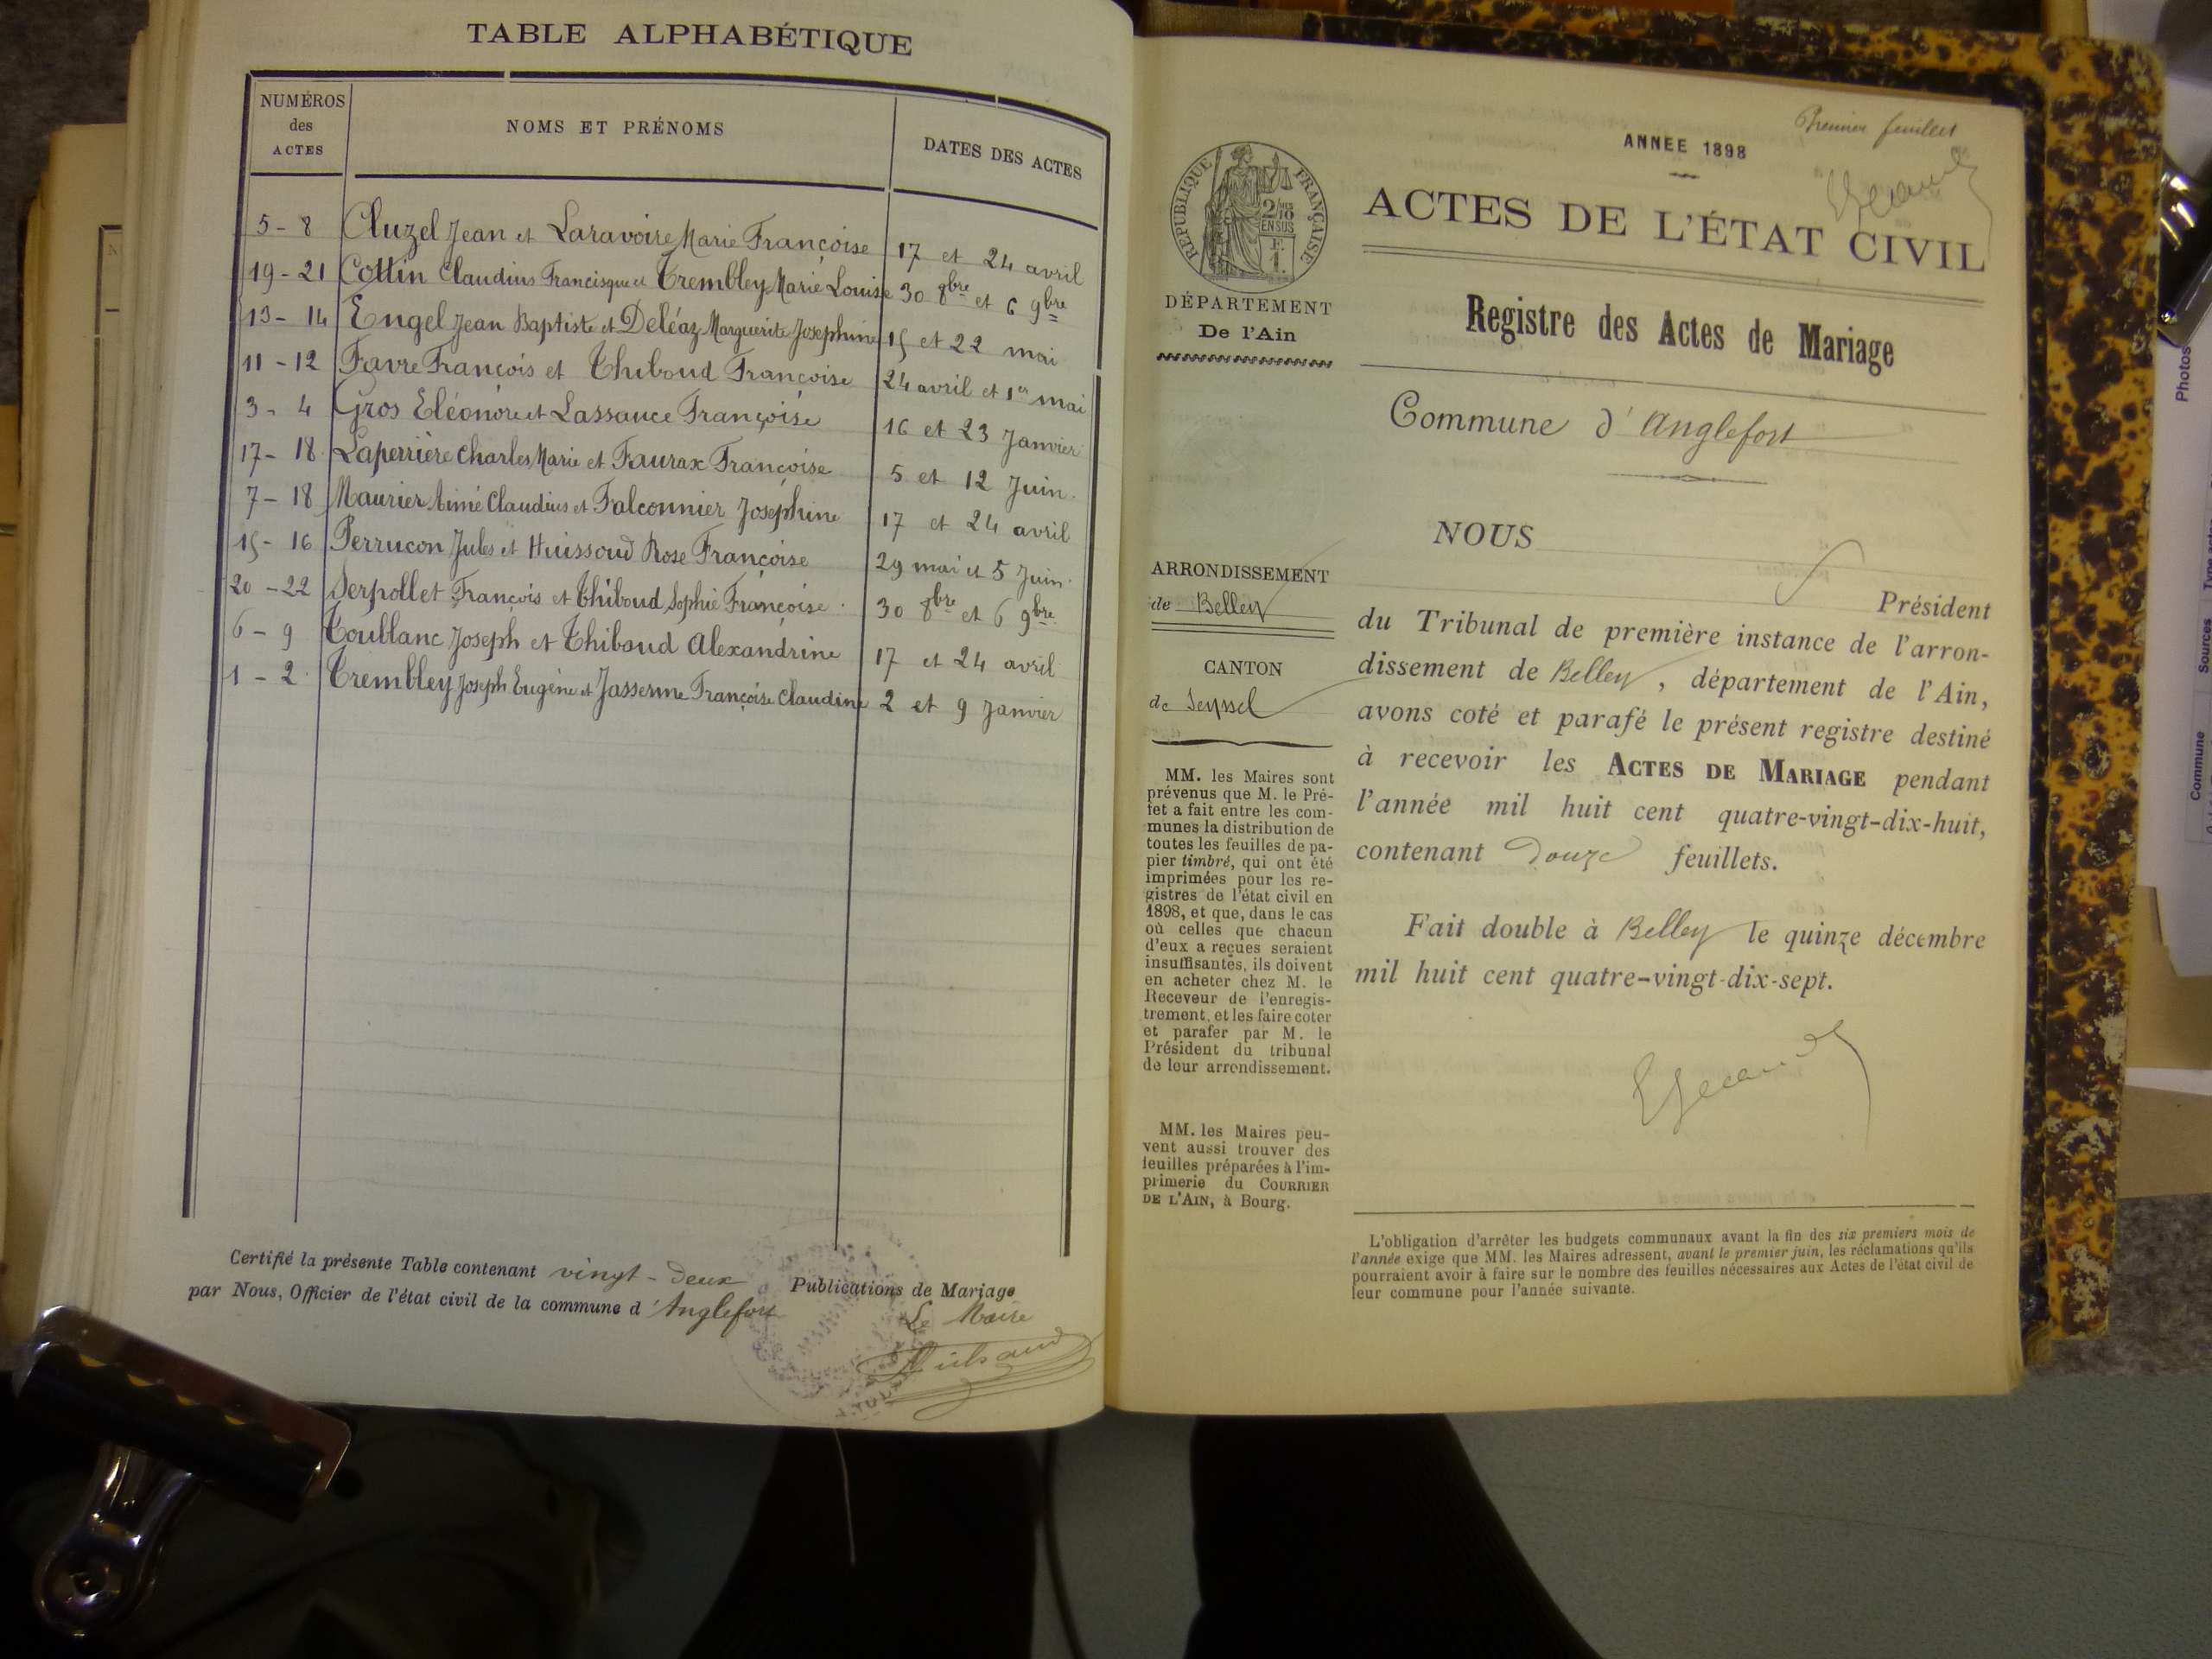 TABLE ALPHABÉTIQUE
NUMÉROS des ACTES
NOMS ET PRÉNOMS
DATES DES ACTES
5 - 8 Cluzel Jean et Laravoire Marie Françoise 17 et 24 avril
19 - 21 Cottin Claudius Francisque et Trembley Marie Louise 30 8bre et 6 9bre
13 - 14 Engel Jean Baptiste et Deléaz Marguerite Josephine 15 et 22 mai
11 - 12 Favre François et Thiboud Françoise 24 avril et 1er mai
3 - 4 Gros Eléonore et Lassauce Françoise 16 et 23 Janvier
17 - 18 Laperrière Charles Marie et Faurax Françoise 5 et 12 Juin.
7 - 18 Maurier Aimé Claudius et Falconnier Joséphine 17 et 24 avril
15 - 16 Perrucon Jules et Huissoud Rose Françoise 29 mai et 5 Juin.
20 - 22 Serpollet François et Thiboud Sophie Françoise. 30 8bre et 6 9bre
6 - 9 Toublanc Joseph et Thiboud Alexandrine 17 et 24 avril
1 - 2 Trembley Joseph Eugène et Jasserme Françoise Claudine 2 et 9 Janvier
Certifié la présente Table contenant vingt-deux Publications de Mariage
par Nous, Officier de l'état civil de la commune d'Anglefort
Le Maire
Premier feuillet
ANNEE 1898
ACTES DE L'ÉTAT CIVIL
Registre des Actes de Mariage
Commune d'Anglefort
RÉPUBLIQUE FRANÇAISE
2/10 EN SUS
F. 1.
DÉPARTEMENT
De l'Ain
ARRONDISSEMENT
de Belley
CANTON
de Seyssel
MM. les Maires sont
prévenus que M. le Pré-
fet a fait entre les com-
munes la distribution de
toutes les feuilles de pa-
pier timbré, qui ont été
imprimées pour les re-
gistres de l'état civil en
1898, et que, dans le cas
où celles que chacun
d'eux a reçues seraient
insuffisantes, ils doivent
en acheter chez M. le
Receveur de l'enregis-
trement, et les faire coter
et parafer par M. le
Président du tribunal
de leur arrondissement.
MM. les Maires peu-
vent aussi trouver des
feuilles préparées à l'im-
primerie du COURRIER
DE L'AIN, à Bourg.
NOUS
Président
du Tribunal de première instance de l'arron-
dissement de Belley, département de l'Ain,
avons coté et parafé le présent registre destiné
à recevoir les ACTES DE MARIAGE pendant
l'année mil huit cent quatre-vingt-dix-huit,
contenant Douze feuillets.
Fait double à Belley le quinze décembre
mil huit cent quatre-vingt-dix-sept.
L'obligation d'arrêter les budgets communaux avant la fin des six premiers mois de
l'année exige que MM. les Maires adressent, avant le premier juin, les réclamations qu'ils
pourraient avoir à faire sur le nombre des feuilles nécessaires aux Actes de l'état civil de
leur commune pour l'année suivante.
Photos
Sources
Commune